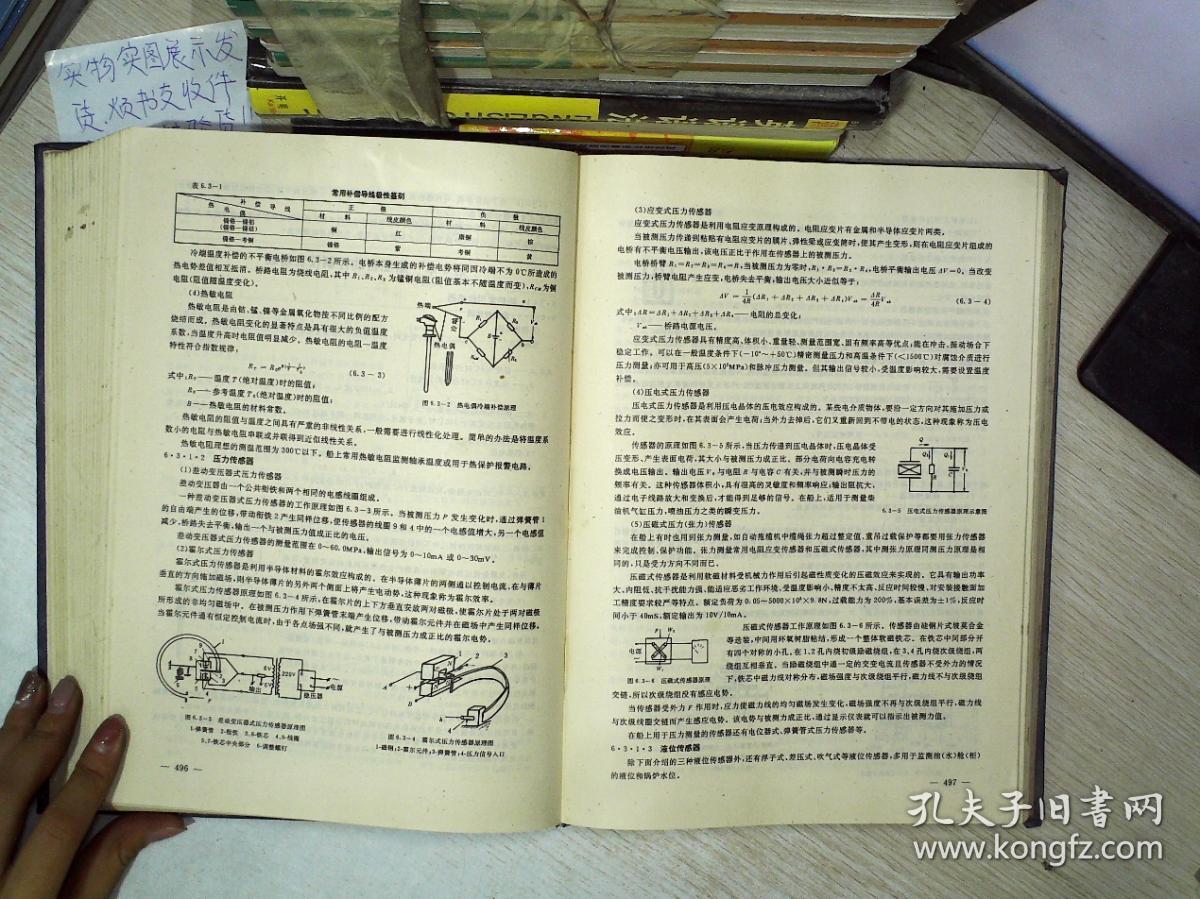 实物实图展示发
货,
收件
ENGLISH
表6.3-1
常用补偿导线极性鉴别
补偿导线
热电偶
正极
负极
材料
线皮颜色
材料
线皮颜色
镍铬—镍铝
(镍铬—镍硅)
铜
红
康铜
棕
镍铬—考铜
镍铬
紫
考铜
黄
冷端温度补偿的不平衡电桥如图6.3-2所示。电桥本身生成的补偿电势将同因冷端不为0℃所造成的
热电势差值相互抵消。桥路电阻为绕线电阻,其中R₁、R₂、R₃为锰铜电阻(阻值基本不随温度而变),R_Cu为铜
电阻(阻值随温度变化)。
(4)热敏电阻
热敏电阻是由钴、锰、镍等金属氧化物按不同比例的配方
烧结而成。热敏电阻变化的显著特点是具有很大的负值温度
系数,当温度升高时电阻值明显减少。热敏电阻的电阻—温度
特性符合指数规律,
(6.3-3)
式中:R_T——温度T(绝对温度)时的阻值;
R_T₀——参考温度T₀(绝对温度)时的阻值;
B——热敏电阻的材料常数。
热端
热电偶
图6.3-2 热电偶冷端补偿原理
热敏电阻的阻值与温度之间具有严重的非线性关系,一般需要进行线性化处理。简单的办法是将温度系
数小的电阻与热敏电阻串联或并联得到近似线性关系。
热敏电阻理想的测温范围为300℃以下。船上常用热敏电阻监测轴承温度或用于热保护报警电路。
6·3·1·2 压力传感器
(1)差动变压器式压力传感器
差动变压器由一个公共衔铁和两个相同的电感线圈组成。
一种差动变压器式压力传感器的工作原理如图6.3-3所示。当被测压力P发生变化时,通过弹簧管1
的自由端产生的位移,带动衔铁2产生同样位移,使传感器的线圈9和4中的一个电感值增大,另一个电感值
减少,桥路失去平衡,输出一个与被测压力值成正比的电压。
差动变压器式压力传感器的测量范围在0~60.0MPa,输出信号为0~10mA或0~30mV。
(2)霍尔式压力传感器
霍尔式压力传感器是利用半导体材料的霍尔效应构成的。在半导体薄片的两侧通以控制电流,在与薄片
垂直的方向施加磁场,则半导体薄片的另外两个侧面上将产生电动势,这种现象称为霍尔效率。
霍尔式压力传感器原理如图6.3-4所示,在霍尔片的上下方垂直安放两对磁极,使霍尔片处于两对磁极
所形成的非均匀磁场中。在被测压力作用下弹簧管末端产生位移,带动霍尔元件并在磁场中产生同样位移,
当霍尔元件通有恒定控制电流时,由于各点场强不同,就产生了与被测压力成正比的霍尔电势。
6V
220V
输出
稳压器
电源
图6.3-3 差动变压器式压力传感器原理图
1-弹簧管 2-衔铁 3,8-铁芯 4,9-线圈
5,7-铁芯中央部分 6-调整螺钉
图6.3-4 霍尔式压力传感器原理图
1-磁钢;2-霍尔元件;3-弹簧管;4-压力信号入口
— 496 —
(3)应变式压力传感器
应变式压力传感器是利用电阻应变原理构成的。电阻应变片有金属和半导体应变片两类。
当被测压力传递到粘贴有电阻应变片的膜片、弹性梁或应变筒时,使其产生变形,则在电阻应变片组成的
电桥有不平衡电压输出,该电压正比于作用在传感器上的被测压力。
电桥桥臂R₁=R₂=R₃=R₄=R,当被测压力为零时,R₁·R₃=R₂·R₄,电桥平衡输出电压ΔV=0。当改变
被测压力,桥臂电阻产生应变,电桥失去平衡,输出电压大小近似等于:
(6.3-4)
式中:ΔR=ΔR₁+ΔR₂+ΔR₃+ΔR₄——电阻的总变化;
——桥路电源电压。
应变式压力传感器具有精度高、体积小、重量轻、测量范围宽、固有频率高等优点;能在冲击、振动场合下
稳定工作。可以在一般温度条件下(-10°~+50℃)精密测量压力和高温条件下(<1500℃)对腐蚀介质进行
压力测量;亦可用于高压(5×10³MPa)和脉冲压力测量。但其输出信号较小,受温度影响较大,需要设置温度
补偿。
(4)压电式压力传感器
压电式压力传感器是利用压电晶体的压电效应构成的。某些电介质物体,要沿一定方向对其施加压力或
拉力而使之变形时,在其表面会产生电荷;当外力去掉后,它们又重新回到不带电的状态,这种现象称为压电
效应。
传感器的原理如图6.3-5所示,当压力传递到压电晶体时,压电晶体受
压变形、产生表面电荷,其大小与被测压力成正比。部分电荷向电容充电转
换成电压输出。输出电压V₀与电阻R与电容C有关,并与被测瞬时压力的
频率有关。这种传感器体积小,具有很高的灵敏度和频率响应;输出阻抗大,
通过电子线路放大和变换后,才能得到足够的信号。在船上,适用于测量柴
油机气缸压力,喷油压力之类的瞬变压力。
图6.3-5 压电式压力传感器原理示意图
(5)压磁式压力(张力)传感器
在船上有时也用到张力测量,如自动拖缆机中缆绳张力超过整定值、重吊过载保护等都要用张力传感器
来完成控制、保护功能。张力测量常用电阻应变传感器和压磁式传感器,其中测张力原理同测压力原理是相
同的,只是受力方向不同而已。
压磁式传感器是利用软磁材料受机械力作用后引起磁性质变化的压磁效应来实现的。它具有输出功率
大、内阻低、抗干扰能力强、能适应恶劣工作环境、受温度影响小、精度不太高、反应时间较慢,对安装接触面加
工精度要求较严等特点。额定负荷为0.05~5000×10³×9.8N,过载能力为200%,基本误差为±1%,反应时
间小于40mS,额定输出为10V/10mA。
电源
图6.3-6 压磁式传感器原理
压磁式传感器工作原理如图6.3-6所示。传感器由硅钢片或镍莫合金
等迭装,中间用环氧树脂粘结,形成一个整体软磁铁芯。在铁芯中间部分开
有四个对称的小孔,在1、2孔内绕初级励磁绕组,在3、4孔内绕次级绕组,两
绕组互相垂直。当励磁绕组中通一定的交变电流且传感器不受外力的情况
下,铁芯中磁力线对称分布,磁场强度与次级绕组平行,磁力线不与次级绕组
交链,所以次级绕组没有感应电势。
当传感器受外力F作用时,应力使磁力线的均匀磁场发生变化,磁场强度不再与次级绕组平行,磁力线
与次级线圈交链而产生感应电势。该电势与被测力成正比,通过显示仪表就可以指示出被测力值。
在船上用于压力测量的传感器还有电位器式、弹簧管式压力传感器等。
6·3·1·3 液位传感器
除下面介绍的三种液位传感器外,还有浮子式、差压式、吹气式等液位传感器,多用于监测池(水)舱(柜)
的液位和锅炉水位。
— 497 —
孔夫子旧书网
www.kongfz.com